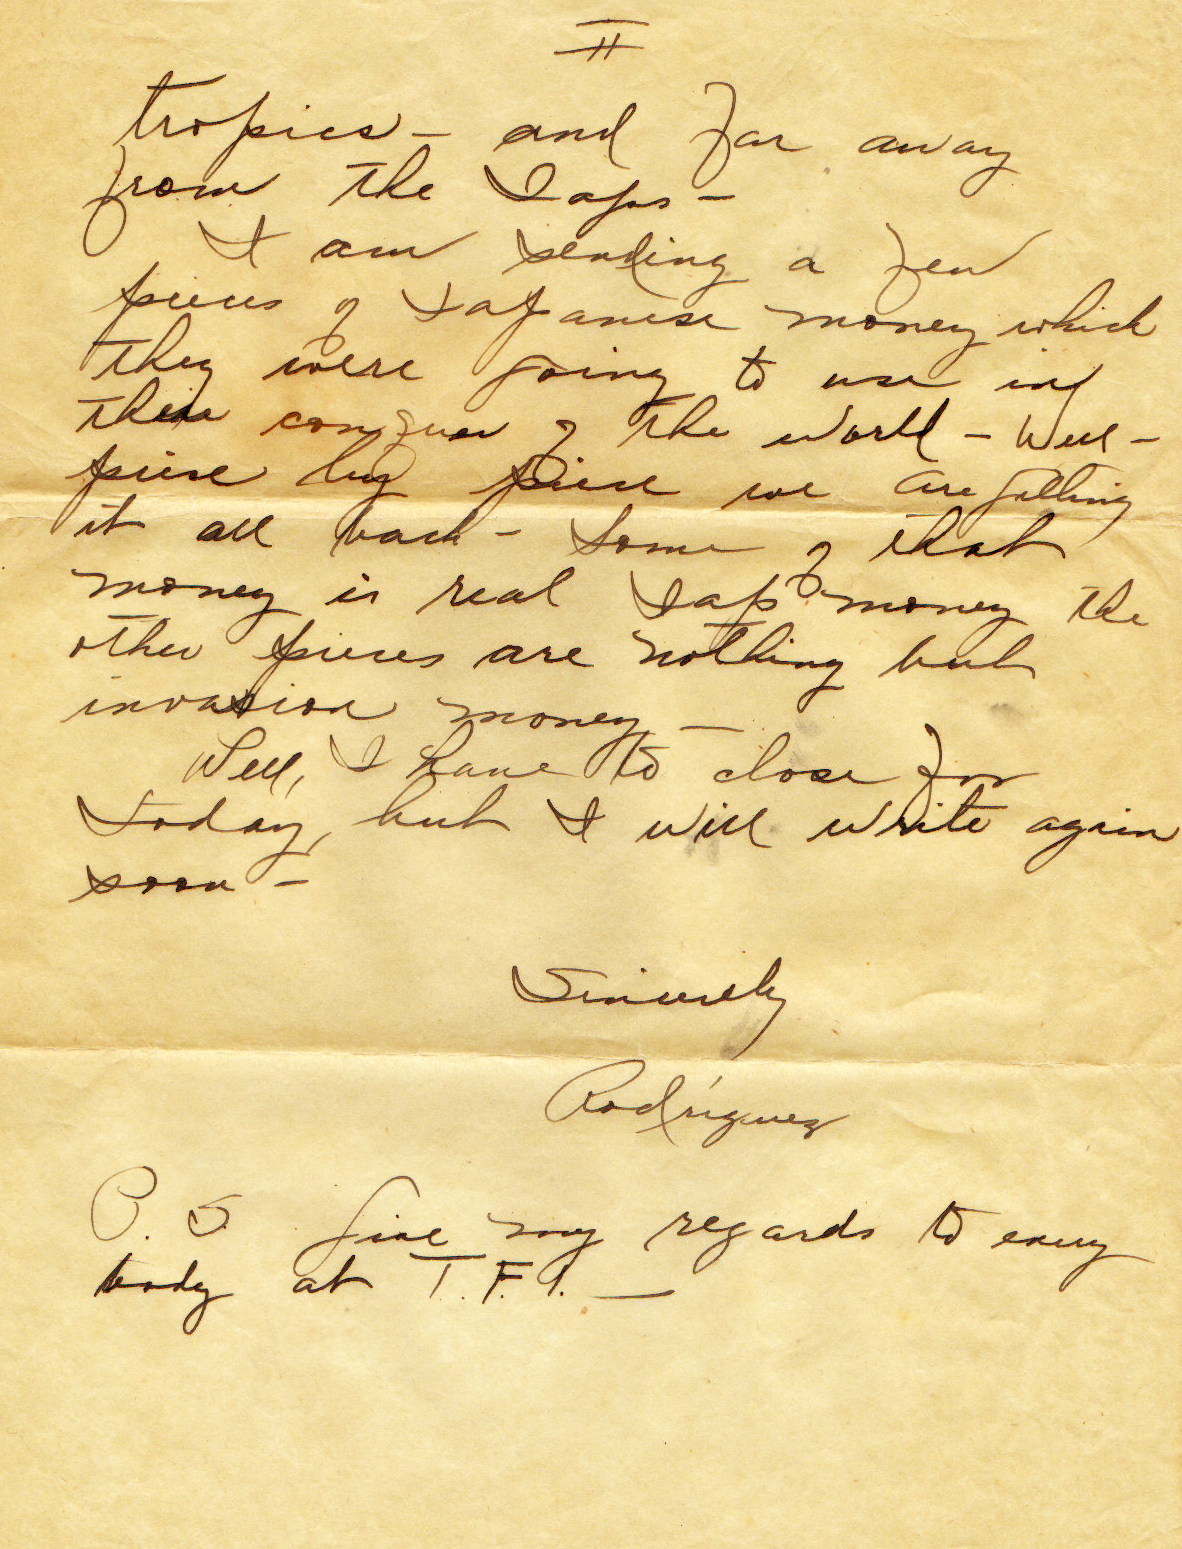 II
tropics - and far away
from the Japs -
I am sending a few
pieces of Japanese money which
they were going to use in
their conquer of the world - Well -
piece by piece we are getting
it all back - Some of that
money is real Jap money the
other pieces are nothing but
invasion money -
Well, I have to close for
today, but I will write again
soon -
Sincerely
Rodríguez
P. S Give my regards to every
body at T.F.I. -